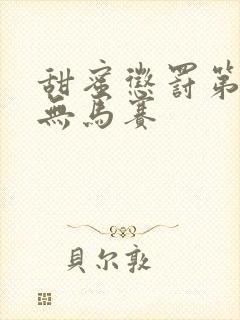 甜蜜懲罰第
無馬賽
貝尔敦